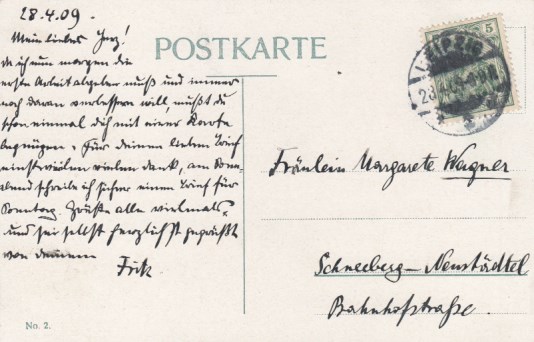 28.4.09.
Mein liebes Herz!
Da ich nun morgen die
erste Arbeit abgeben muß und immer
noch daran verbessern will, mußt du
schon einmal dich mit einer Karte
begnügen. Für deinen lieben Brief
einstweilen vielen Dank, am Sonn-
abend schreibe ich sicher einen Brief für
Sonntag. Grüße alle vielmals,
und sei selbst herzlichst gegrüßt
von deinem
Fritz
POSTKARTE
5
LEIPZIG
Fräulein Margarete Wagner
Schneeberg-Neustädtel
Bahnhofstraße.
No. 2.